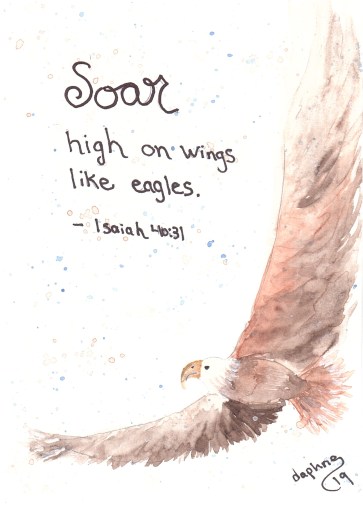 Soar
high on wings
like eagles.
- Isaiah 40:31
daphne
19